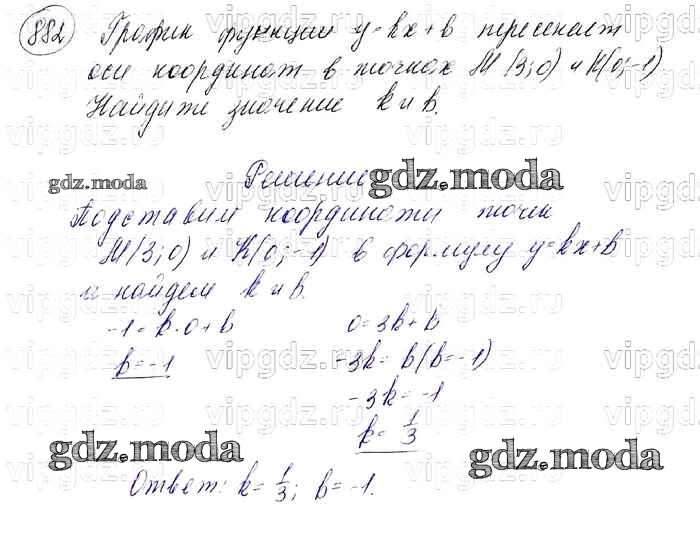 882 График функции y=kx+b пересекает
оси координат в точках M(3;0) и K(0;-1)
Найдите значение k и b.
Решение
gdz.moda gdz.moda
Подставим координаты точек
M(3;0) и K(0;-1) в формулу y=kx+b
и найдем k и b.
-1=k·0+b 0=3k+b
b=-1 -3k=b(b=-1)
-3k=-1
k=1/3
gdz.moda gdz.moda
Ответ: k=1/3; b=-1.